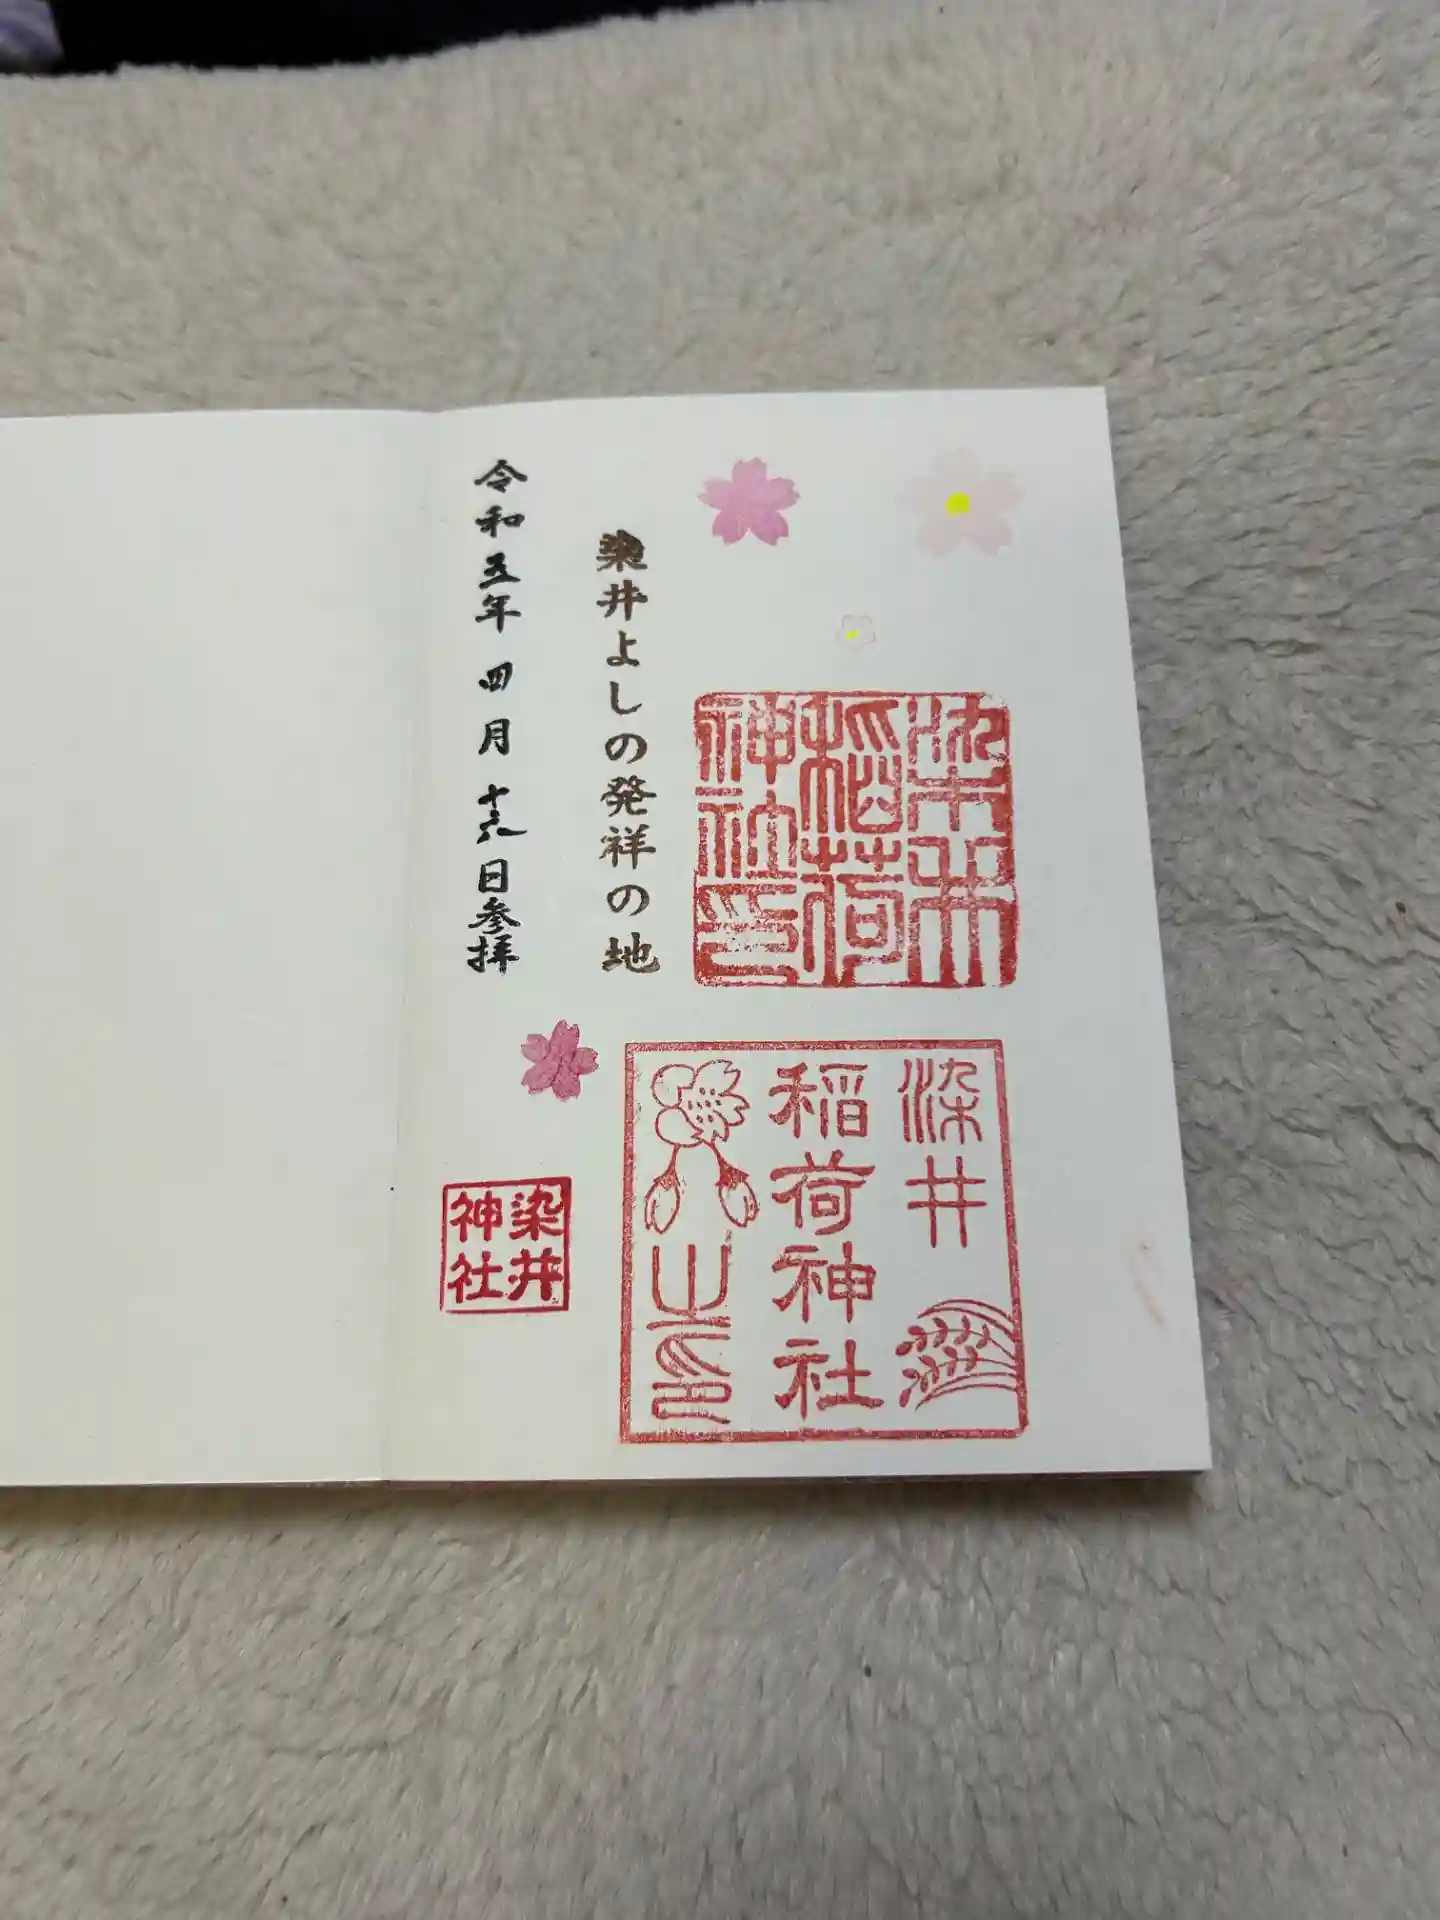 染井稲荷
神社印
染井よしの発祥の地
令和五年四月十六日参拝
染井
稲荷神社
之印
染井
神社